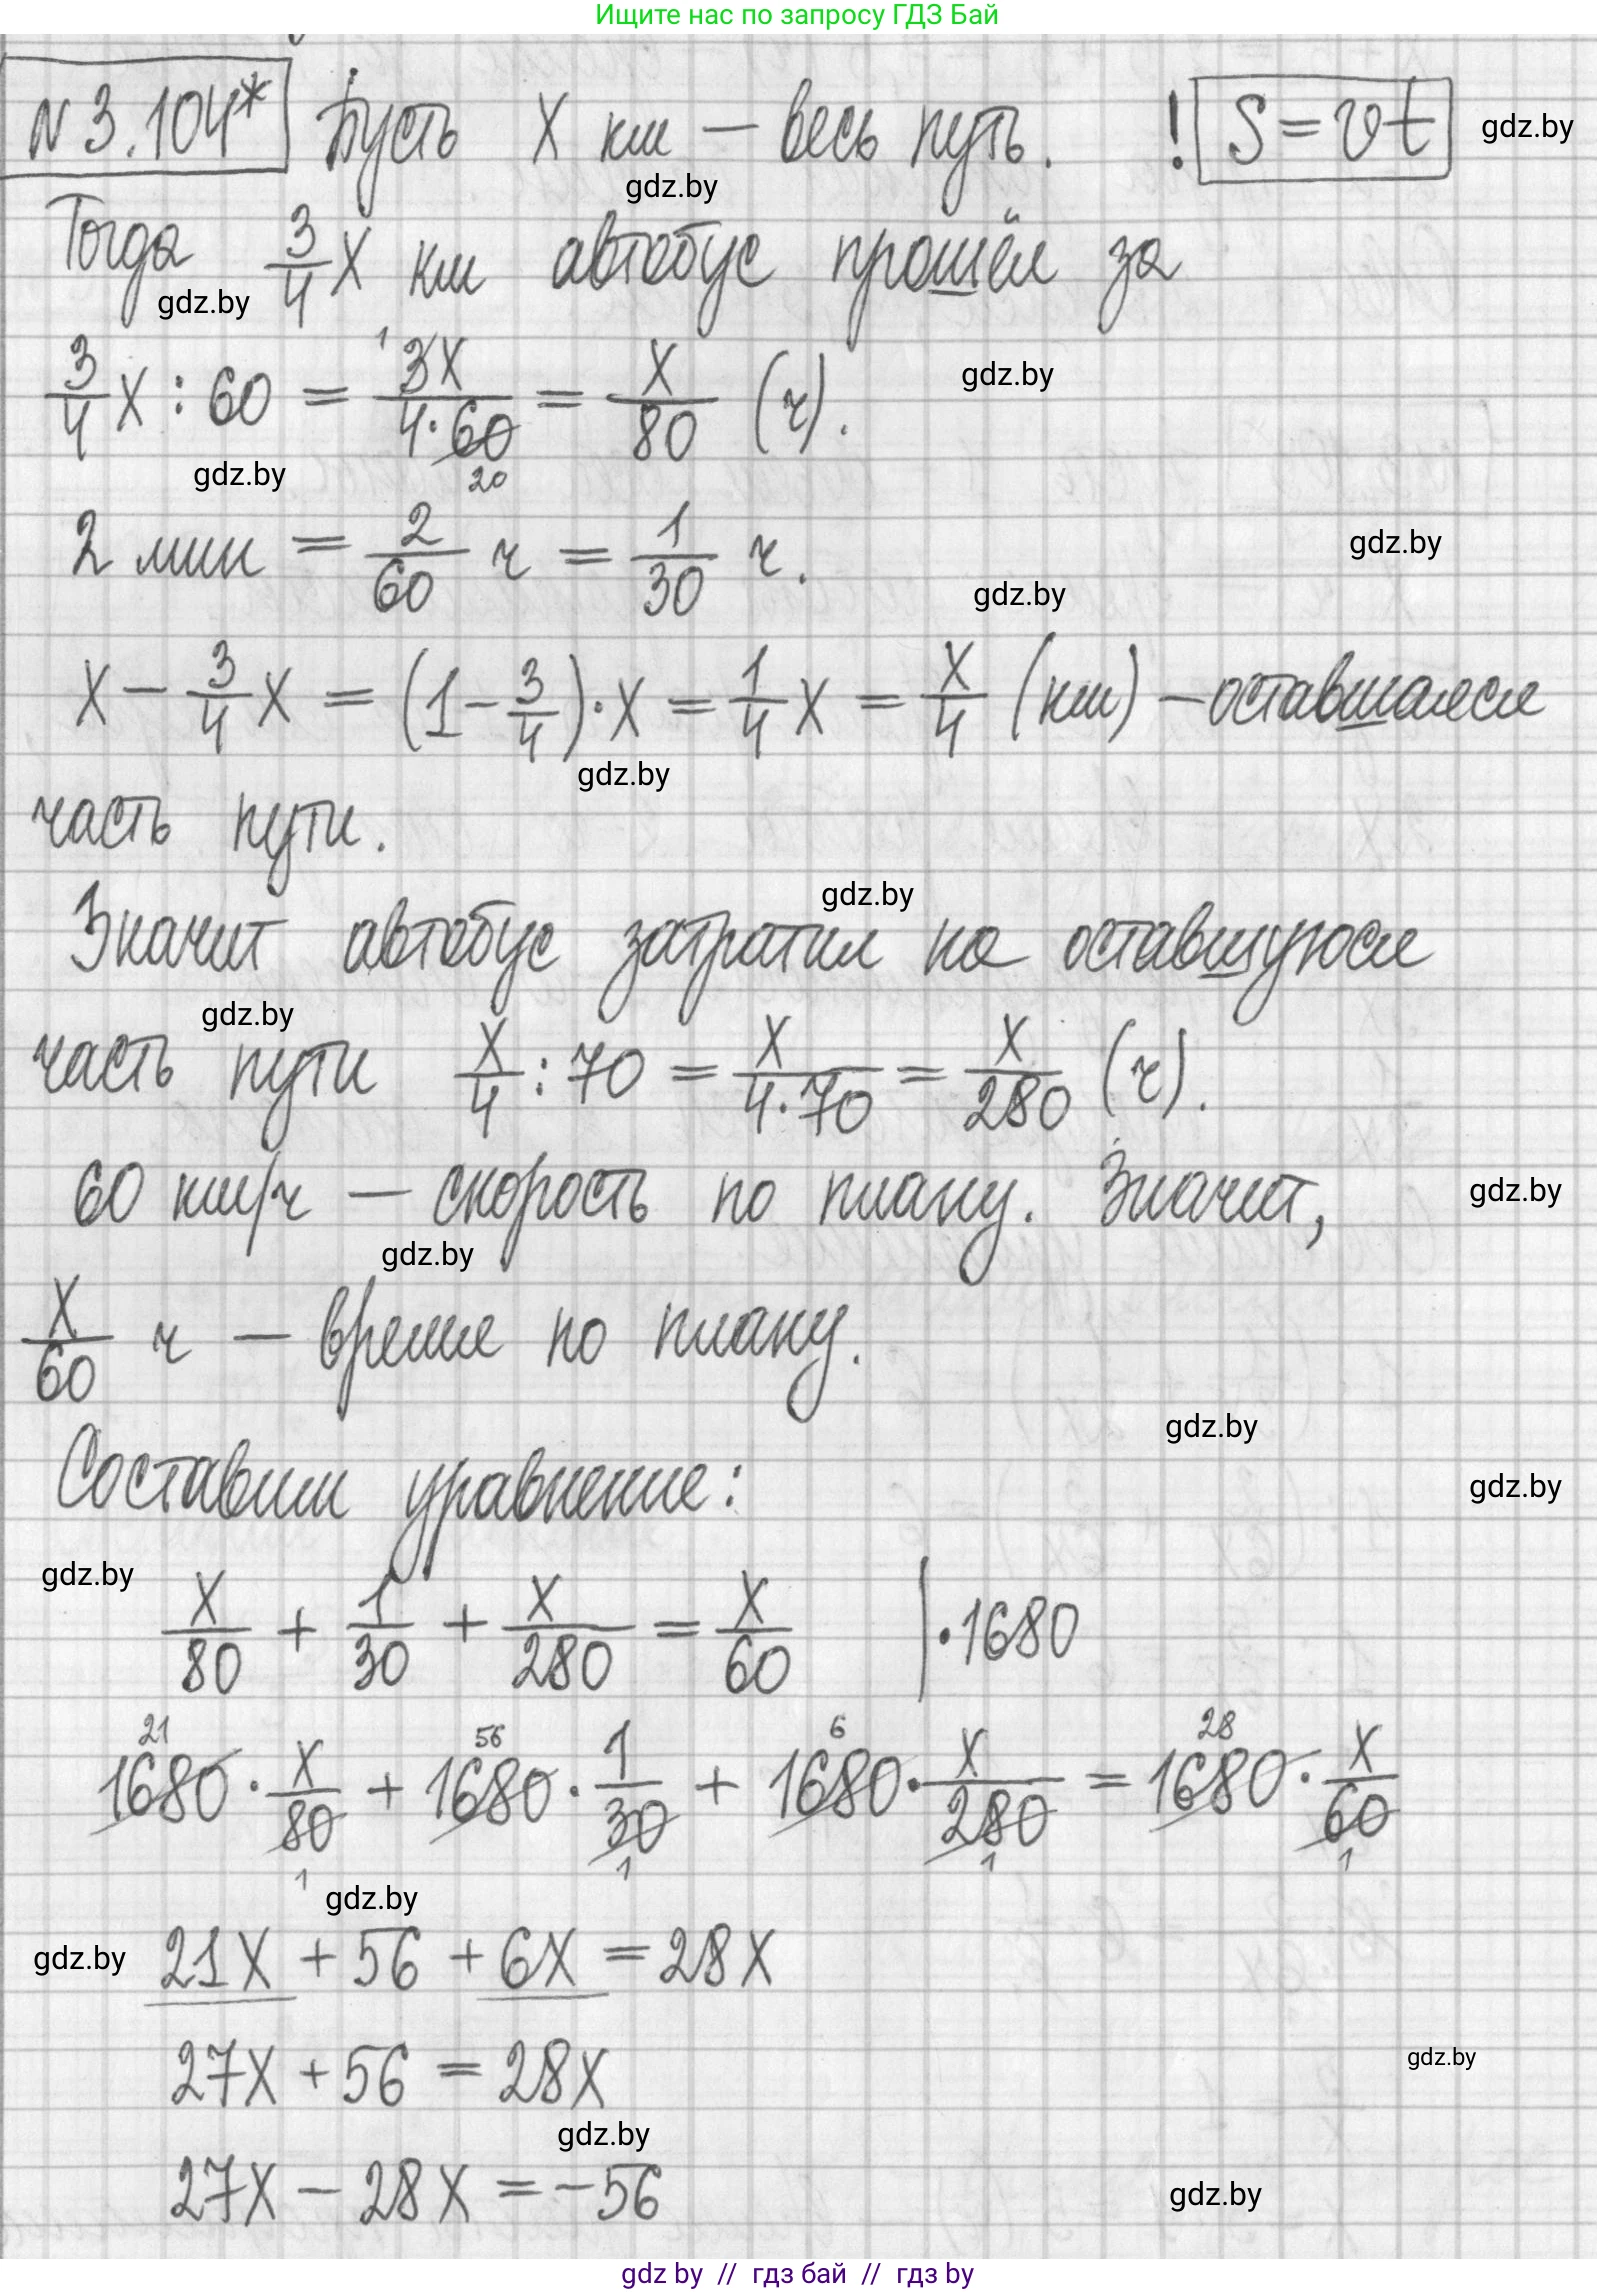 Ищите нас по запросу ГДЗ Бай
N 3.104* Пусть X км — весь путь. ! S = vt
gdz.by
gdz.by
Тогда 3/4 X км автобус прошёл за
gdz.by
3/4 X : 60 = 3X/(4·60) = X/80 (ч).
1
20
gdz.by
gdz.by
2 мин = 2/60 ч = 1/30 ч.
gdz.by
gdz.by
X − 3/4 X = (1 − 3/4)·X = 1/4 X = X/4 (км) — оставшаяся
gdz.by
часть пути.
gdz.by
Значит автобус затратил на оставшуюся
gdz.by
часть пути X/4 : 70 = X/(4·70) = X/280 (ч).
60 км/ч — скорость по плану. Значит,
gdz.by
gdz.by
X/60 ч — время по плану.
gdz.by
Составим уравнение:
gdz.by
gdz.by
X/80 + 1/30 + X/280 = X/60 | ·1680
21 56 6 28
1680 · X/80 + 1680 · 1/30 + 1680 · X/280 = 1680 · X/60
1 1 1 1
gdz.by
gdz.by
21X + 56 + 6X = 28X
27X + 56 = 28X
gdz.by
gdz.by
27X − 28X = −56
gdz.by
gdz by // гдз бай // гдз by